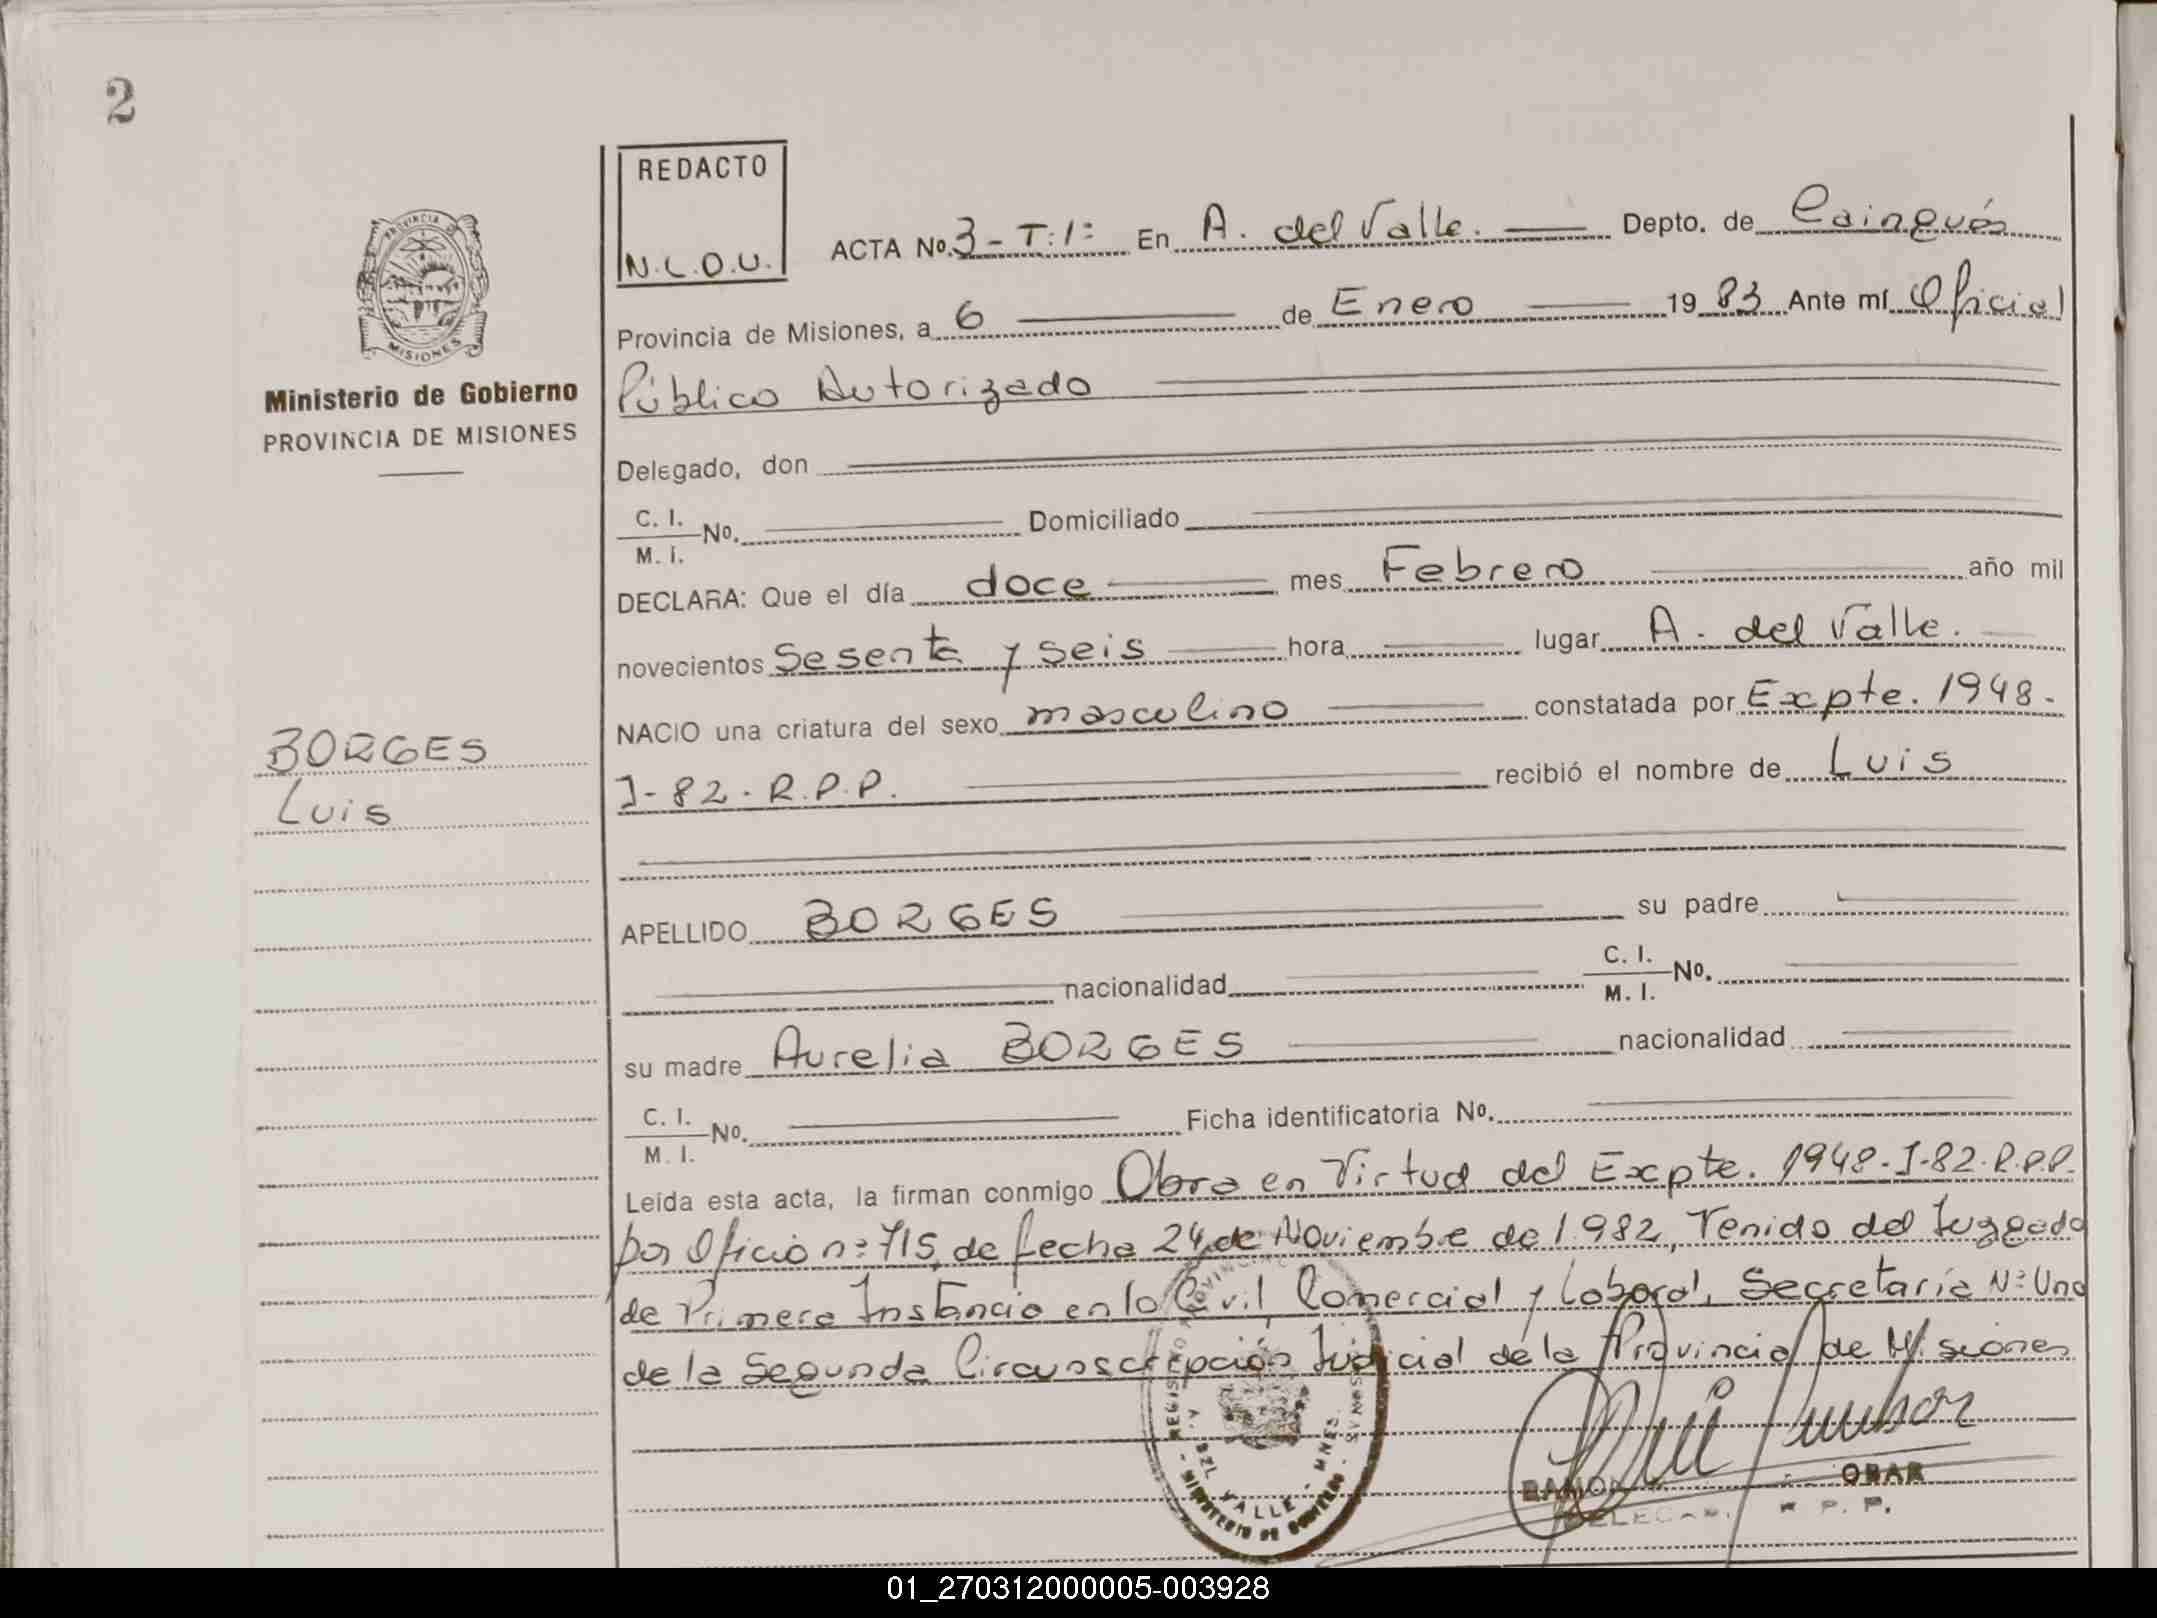 2
REDACTO
N.L.D.U.
ACTA No. 3 - T: 1º En A. del Valle. Depto. de Cainguás
Provincia de Misiones, a 6 de Enero 1983 Ante mí Oficial
Público Autorizado
MISIONES
Ministerio de Gobierno
PROVINCIA DE MISIONES
Delegado, don
C. I.
M. I. No. Domiciliado
DECLARA: Que el día doce mes Febrero año mil
novecientos Sesenta y seis hora lugar A. del Valle.
NACIO una criatura del sexo masculino constatada por Expte. 1948-
J-82. R.P.P. recibió el nombre de Luis
BORGES
Luis
APELLIDO BORGES su padre
nacionalidad C. I.
M. I. No.
su madre Aurelia BORGES nacionalidad
C. I.
M. I. No. Ficha identificatoria No.
Leída esta acta, la firman conmigo Obra en Virtud del Expte. 1948-J-82-R.P.P.
por Oficio nº 715, de fecha 24 de Noviembre de 1.982, Venido del Juzgado
de Primera Instancia en lo Civil, Comercial y Laboral, Secretaría Nº Uno
de la Segunda Circunscripción Judicial de la Provincia de Misiones
VALLE - MNES.
MINISTERIO DE GOBIERNO
RAMON
R. P. P.
01_270312000005-003928